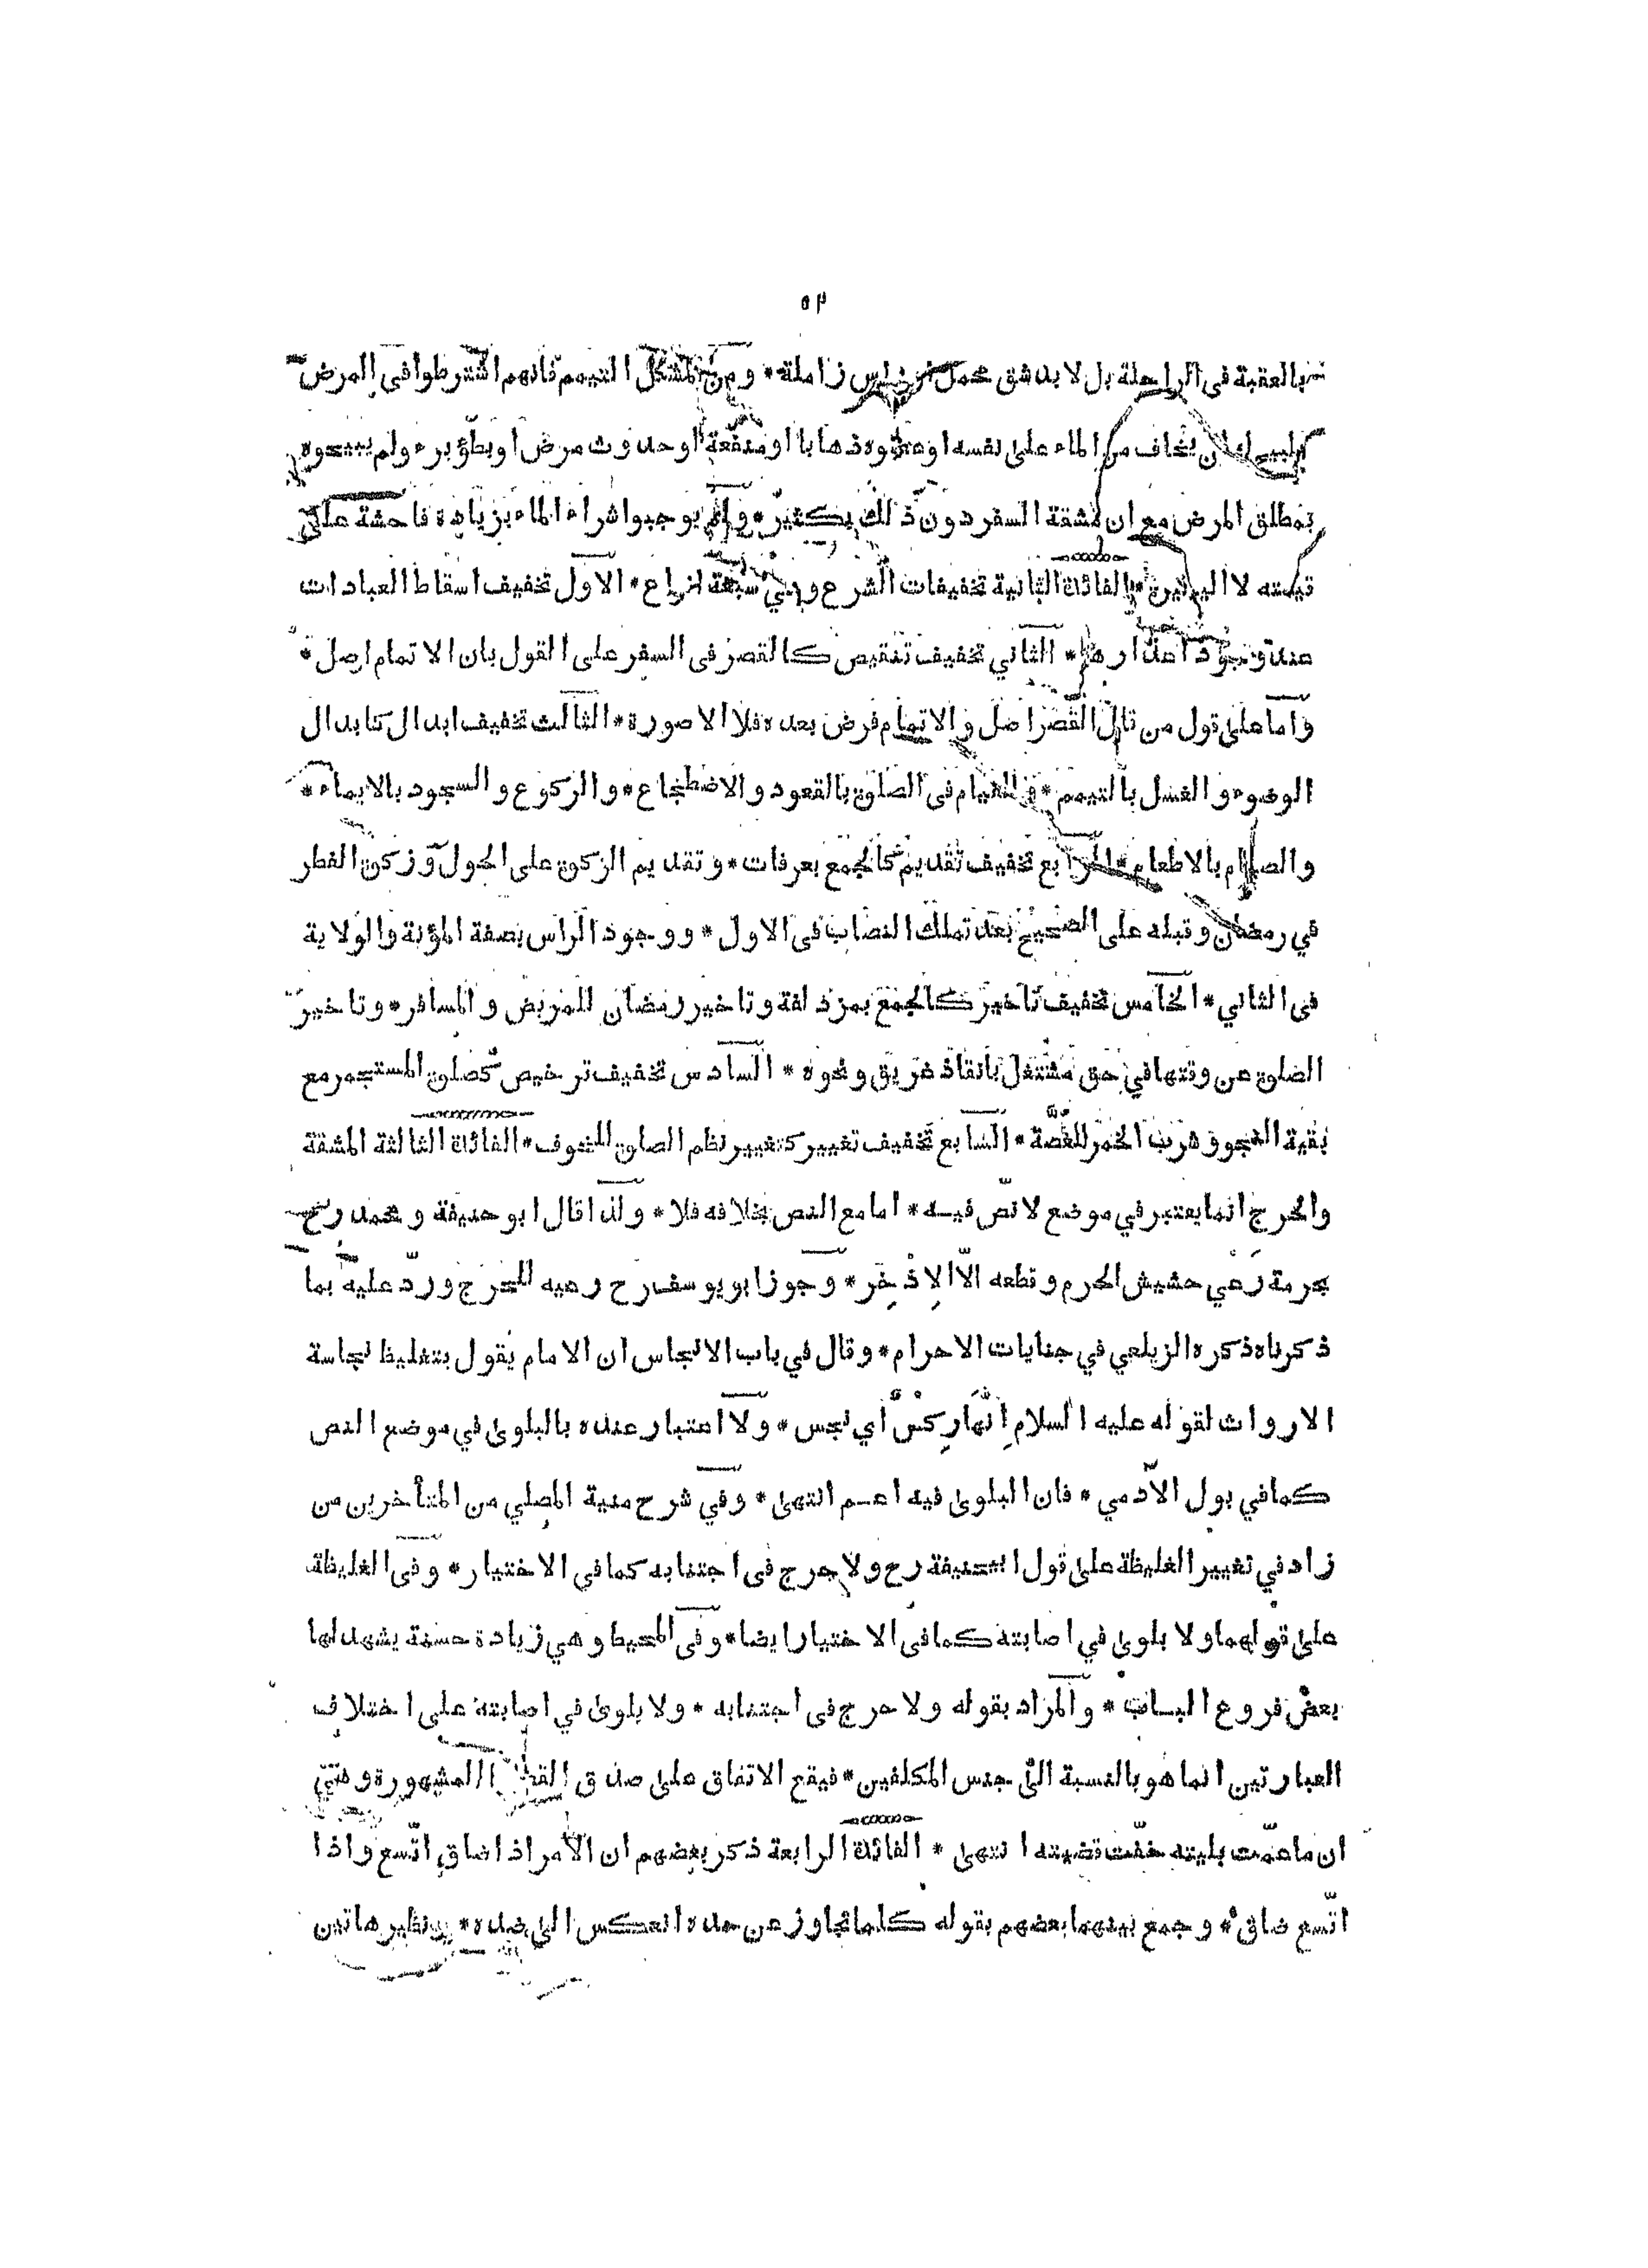 ٥٢
بالعقبة فى الراحلة بل لا بد شق محمل او راس زاملة * ومن المشكل التيمم فانهم اشترطوا فى المرض
المبيح له ان يخاف من الماء على نفسه او عضوه ذهابا او منفعة او حدوث مرض او بطؤ برء ولم يبيحوه
بمطلق المرض مع ان مشقة السفر دون ذلك بكثير * ولم يوجبوا شراء الماء بزيادة فاحشة على
قيمته لا اليسيرة * الفائدة الثانية تخفيفات الشرع وهي سبعة انواع * الاول تخفيف اسقاط العبادات
عند وجود اعذارها * الثاني تخفيف تنقيص كالقصر فى السفر على القول بان الاتمام اصل *
واما على قول من قال القصر اصل والاتمام فرض بعده فلا الا صورة * الثالث تخفيف ابدال كابدال
الوضوء والغسل بالتيمم * والقيام فى الصلوة بالقعود والاضطجاع * والركوع والسجود بالايماء *
والصيام بالاطعام * الرابع تخفيف تقديم كالجمع بعرفات * وتقديم الزكوة على الحول وزكوة الفطر
في رمضان وقبله على الصحيح بعد تملك النصاب فى الاول * ووجود الراس بصفة المؤنة والولاية
فى الثاني * الخامس تخفيف تاخير كالجمع بمزدلفة وتاخير رمضان للمريض والمسافر * وتاخير
الصلوة عن وقتها في حق مشتغل بانقاذ غريق ونحوه * السادس تخفيف ترخيص كصلوة المستجمر مع
بقية النجو وشرب الخمر للغصّة * السابع تخفيف تغيير كتغيير نظم الصلوة للخوف * الفائدة الثالثة المشقة
والحرج انما يعتبر في موضع لا نصّ فيه * اما مع النص بخلافه فلا * ولذا قال ابو حنيفة ومحمد رح
بحرمة رَعْي حشيش الحرم وقطعه الّا الاِذْخِر * وجوز ابو يوسف رح رعيه للحرج وردّ عليه بما
ذكرناه ذكره الزيلعي في جنايات الاحرام * وقال في باب الانجاس ان الامام يقول بتغليظ نجاسة
الارواث لقوله عليه السلام اِنّهَا رِكْسٌ أي نجس * ولا اعتبار عنده بالبلوى في موضع النص
كما في بول الآدمي * فان البلوى فيه اعم انتهى * وفي شرح منية المصلي من المتأخرين من
زاد في تغيير الغليظة على قول ابيحنيفة رح ولا حرج فى اجتنابه كما فى الاختيار * وفى الغليظة
على قولهما ولا بلوى في اصابته كما فى الاختيار ايضا * وفى المحيط وهي زيادة حسنة يشهد لها
بعض فروع الباب * والمراد بقوله ولا حرج فى اجتنابه * ولا بلوى في اصابته على اختلاف
العبارتين انما هو بالنسبة الى جنس المكلفين * فيقع الاتفاق على صدق القضية المشهورة وهي
ان ما عمّت بليته خفّت قضيته انتهى * الفائدة الرابعة ذكر بعضهم ان الأمر اذا ضاق اتّسع واذا
اتّسع ضاق * وجمع بينهما بعضهم بقوله كلما تجاوز عن حده انعكس الى ضده * ونظير هاتين